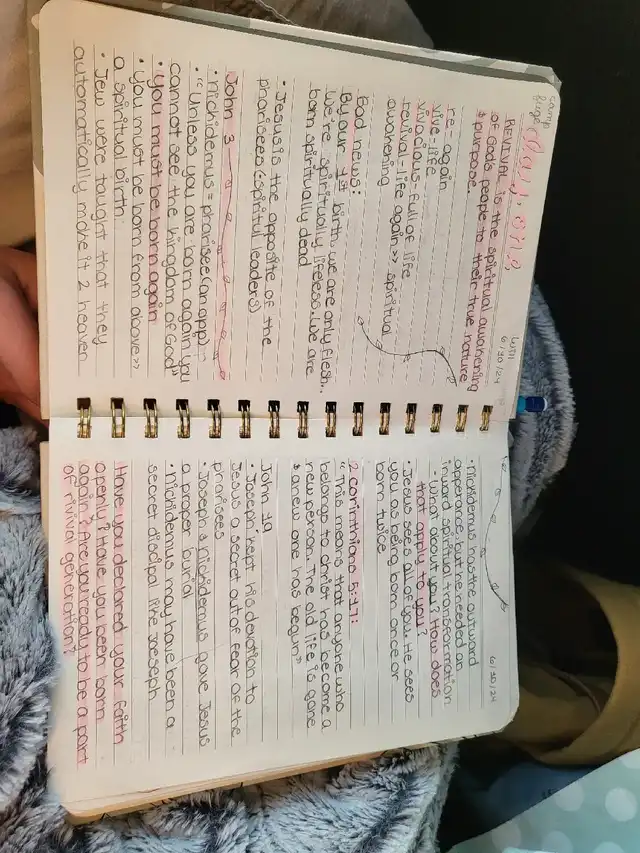 camp
fuge
will
6/30/24
REVIVAL is the spiritual awakening
of God's people to their true nature
& purpose.
re - again
vive - life
vivacious - full of life
revival - life again >> spiritual
awakening
Bad news:
By our 1st birth, we are only flesh..
we're spiritually lifeless. We are
born spiritually dead
• Jesus is the opposite of the
pharisees (spiritul leaders)
John 3
• nichidemus = pharisee (an opp)
• "unless you are born again you
cannot see the kingdom of God"
• you must be born again
• you must be born from above >>
a spiritual birth.
• Jew were taught that they
automatically make it 2 heaven
6/30/24
• Nichidemus has the outward
apperance but he needed an
inward spiritual transformation
- what about you? How does
that apply to you?
• Jesus sees all of you. He sees
you as being born once or
born twice
2 corinthians 5:17:
"This means that anyone who
belongs to christ has become a
new person. The old life is gone
& a new one has begun"
John 19
• Joseph kept his devotion to
Jesus a secret out of fear of the
pharisees
• Joseph & nichidemus gave Jesus
a proper burial
• Nichidemus may have been a
secret disipal like Joeseph
Have you declared your faith
openly? Have you been born
again? Are you ready to be a part
of rivival generation?